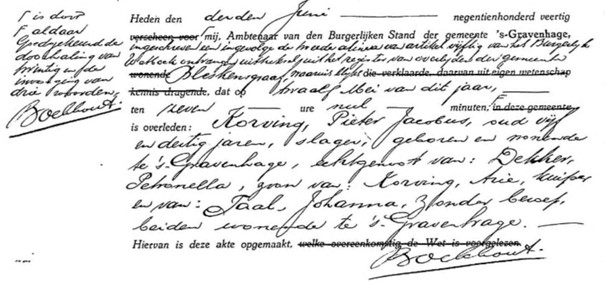 T is door
F aldaar
Goedgekeurd de
doorhaling van
twintig en de
invoeging van
drie woorden.
Boekhout
Heden den derden Juni negentienhonderd veertig
verscheen voor mij, Ambtenaar van den Burgerlijken Stand der gemeente 's-Gravenhage,
ingeschreven ingevolge de tweede alinea van artikel vijftig van het Burgerlijk
Wetboek ontvangen uittreksel uit het register van overlijden der gemeente
wonende Bleskensgraaf, waaruit blijkt die verklaarde, daarvan uit eigen wetenschap
kennis dragende, dat op twaalf Mei van dit jaar,
ten zeven ure nul minuten, F in deze gemeente
is overleden: Korving, Pieter Jacobus, oud vijf
en dertig jaren, slager, geboren en wonende
te 's-Gravenhage, echtgenoot van: Dekker,
Petronella, zoon van: Korving, Arie, kuiper
en van: Taal, Johanna, zonder beroep,
beiden wonende te 's-Gravenhage.
Hiervan is deze akte opgemaakt. welke overeenkomstig de Wet is voorgelezen.
Boekhout.